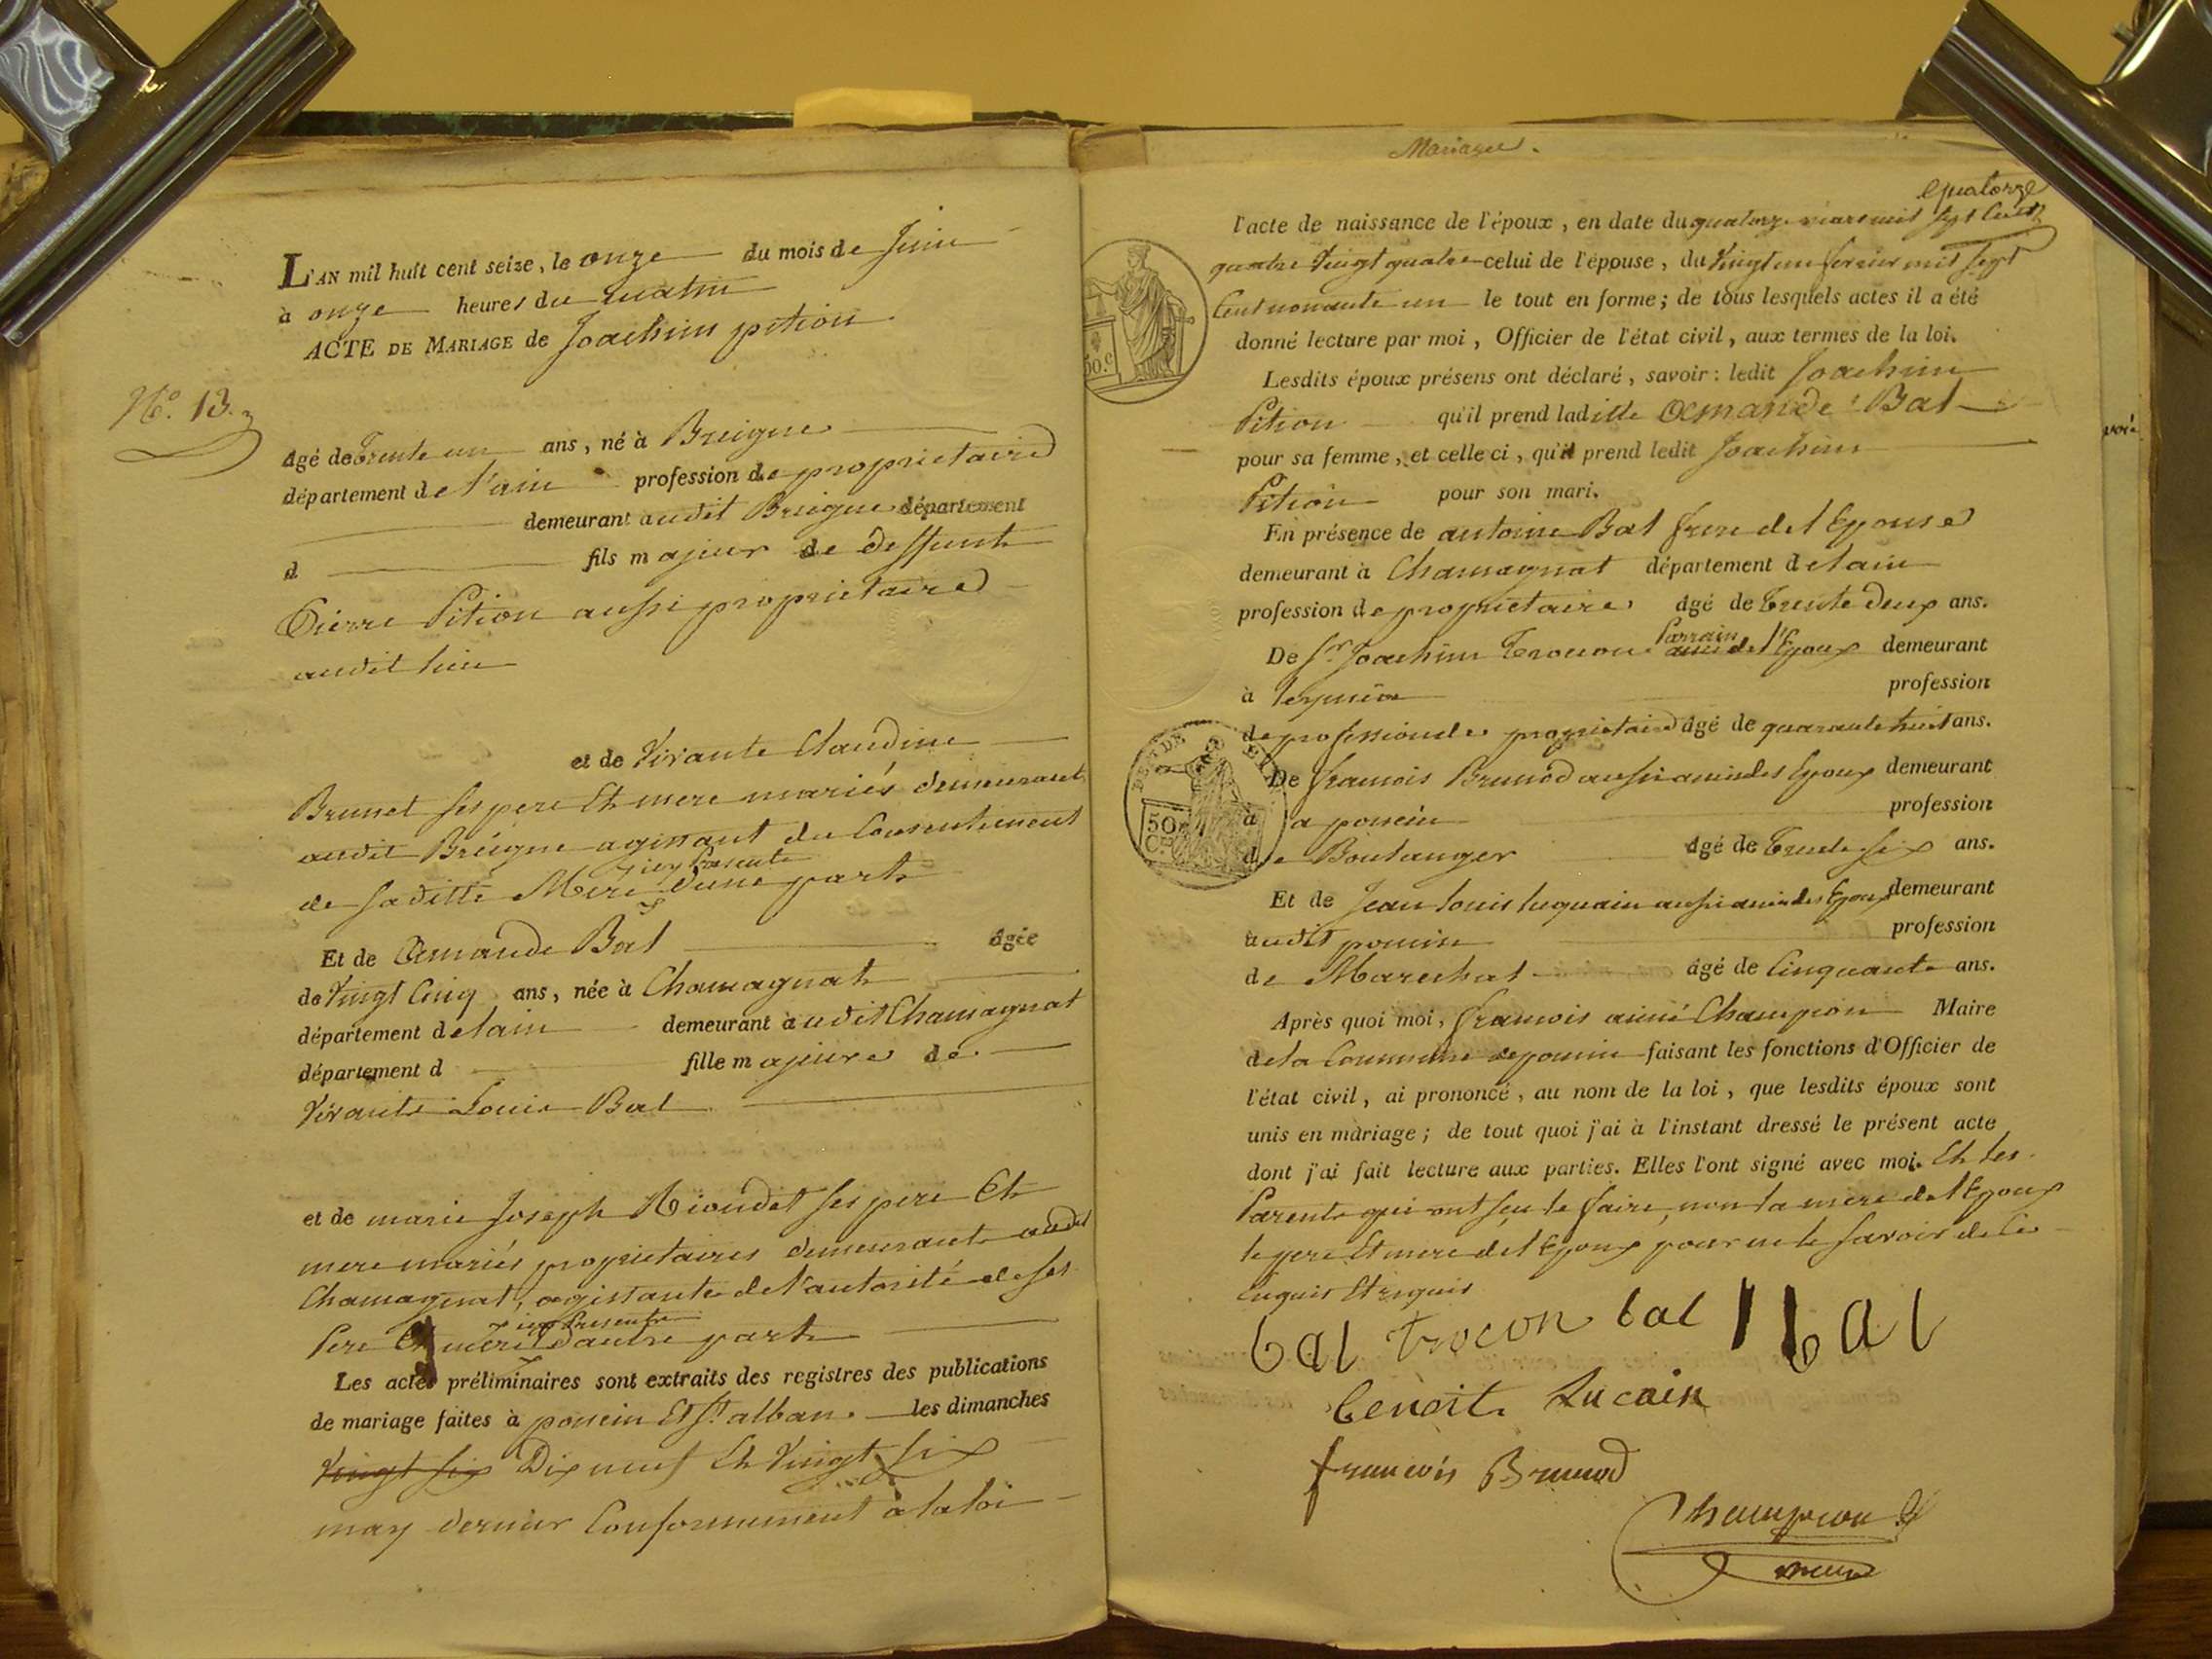 L'AN mil huit cent seize, le onze du mois de Juin
à onze heures du matin
ACTE DE MARIAGE de Joachim pition
N.° 13.
âgé de trente un ans, né à Breigne
département de l'ain profession de proprietaire
demeurant audit Breigne département
d fils majeur de deffunt
Pierre Pition aussi proprietaire
audit lieu
et de Vivante Claudine
Brunet ses pere Et mere mariés demeurant
audit Breigne agissant du Consentement
icy Presente
de sa ditte Mere d'une part
Et de Amande Bal âgée
de Vingt Cinq ans, née à Chamagnat
département de lain demeurant à audit Chamagnat
département d fille majeure de
Vivante Louis Bal
et de marie Joseph Rioudet ses pere Et
mere mariés proprietaires demeurants audit
Chamagnat, agissante de l'autorité de ses
icy Presents
Pere Et mere d'autre part
Les actes préliminaires sont extraits des registres des publications
de mariage faites à poncin Et St. alban les dimanches
Vingt six Dix neuf Et Vingt six
may dernier Conformement a la loi
Mariages.
quatorze
l'acte de naissance de l'époux, en date du quatorze mars mil sept Cent
quatre Vingt quatre celui de l'épouse, du Vingt un fevrier mil sept
Cent nonante un le tout en forme; de tous lesquels actes il a été
donné lecture par moi, Officier de l'état civil, aux termes de la loi.
Lesdits époux présens ont déclaré, savoir: ledit Joachim
Pition qu'il prend laditte Amande Bal
pour sa femme, et celle ci, qu'il prend ledit Joachim
Pition pour son mari.
En présence de antoine Bal frere de l'Epouse
demeurant à Chamagnat département de lain
profession de proprietaire âgé de trente deux ans.
Parrain
De Sr. Joachim Trocon ami de l'Epoux demeurant
à leymia profession
de profession de proprietaire âgé de quarante huit ans.
De francois Brunod aussi ami des Epoux demeurant
à a poncin profession
de Boulanger âgé de trente six ans.
Et de Jean louis luquain aussi ami des Epoux demeurant
audit poncin profession
de Marechal âgé de Cinquante ans.
Après quoi moi, francois aimé Champion Maire
de la Commune de poncin faisant les fonctions d'Officier de
l'état civil, ai prononcé, au nom de la loi, que lesdits époux sont
unis en mariage; de tout quoi j'ai à l'instant dressé le présent acte
dont j'ai fait lecture aux parties. Elles l'ont signé avec moi. Et les
Parents qui ont seu le faire, non la mere de l'Epoux
le pere Et mere de l'Epoux pour ne le savoir de Ce
Enquis Et requis
bal trocon bal bal
benoit Lucain
francois Brunod
Champion
maire
50.c
50
C.es